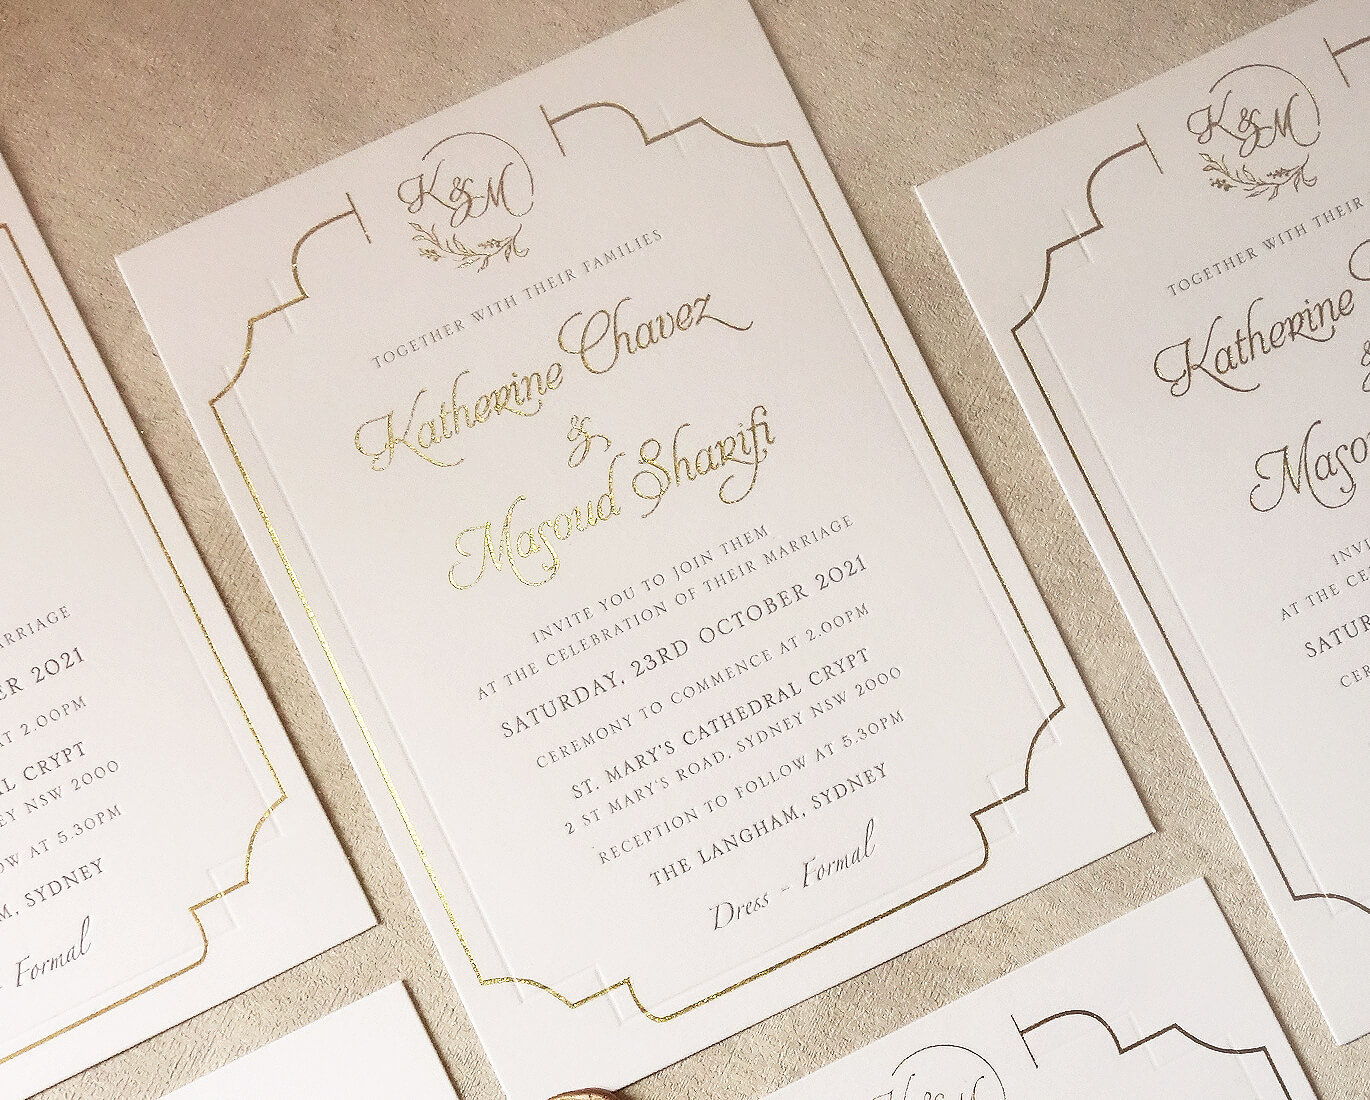 K & M
TOGETHER WITH THEIR FAMILIES
Katherine Chavez
&
Masoud Sharifi
INVITE YOU TO JOIN THEM
AT THE CELEBRATION OF THEIR MARRIAGE
SATURDAY, 23RD OCTOBER 2021
CEREMONY TO COMMENCE AT 2.00PM
ST. MARY'S CATHEDRAL CRYPT
2 ST MARY'S ROAD, SYDNEY NSW 2000
RECEPTION TO FOLLOW AT 5.30PM
THE LANGHAM, SYDNEY
Dress - Formal
ARRIAGE
ER 2021
AT 2.00PM
AL CRYPT
EY NSW 2000
OW AT 5.30PM
M, SYDNEY
- Formal
K & M
TOGETHER WITH THEIR
Katherine
&
Maso
INVI
AT THE CE
SATUR
CER
K & M